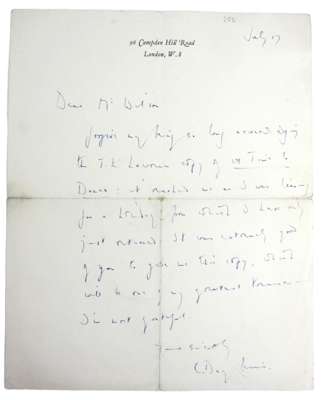 96 Campden Hill Road
London, W.8
July 17
Dear Mr
forgive my being so long acknowledging
the T.E. Lawrence copy of
: it reached me as I was leaving
for a holiday from which I have only
just returned. It was extremely good
of you to give me this copy, which
will be one of my greatest
I'm most grateful.
Yours sincerely
C Day Lewis